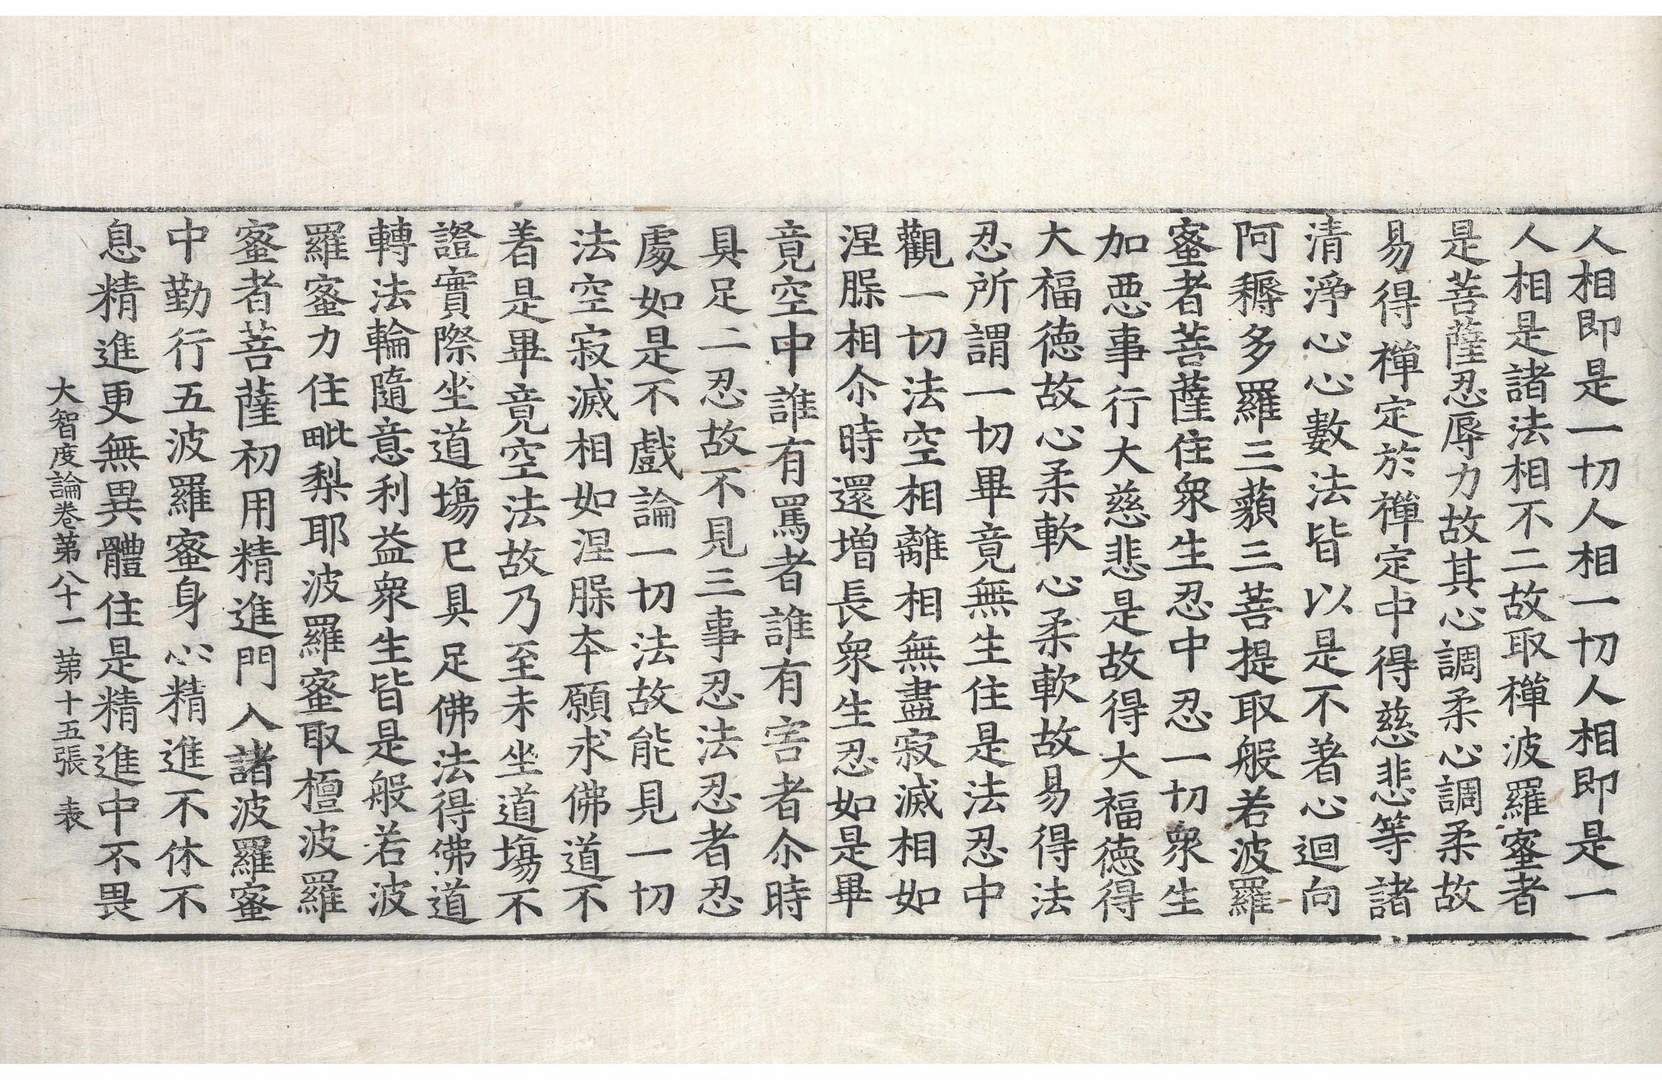 人相即是一切人相一切人相即是一
人相是諸法相不二故取禪波羅蜜者
是菩薩忍辱力故其心調柔心調柔故
易得禪定於禪定中得慈悲等諸
清淨心心數法皆以是不著心迴向
阿耨多羅三藐三菩提取般若波羅
蜜者菩薩住衆生忍中忍一切衆生
加惡事行大慈悲是故得大福德得
大福德故心柔軟心柔軟故易得法
忍所謂一切畢竟無生住是法忍中
觀一切法空相離相無盡寂滅相如
涅槃相尒時還增長衆生忍如是畢
竟空中誰有罵者誰有害者尒時
具足二忍故不見三事忍法忍者忍
處如是不戲論一切法故能見一切
法空寂滅相如涅槃本願求佛道不
着是畢竟空法故乃至未坐道場不
證實際坐道場已具足佛法得佛道
轉法輪隨意利益衆生皆是般若波
羅蜜力住毗梨耶波羅蜜取檀波羅
蜜者菩薩初用精進門入諸波羅蜜
中勤行五波羅蜜身心精進不休不
息精進更無異體住是精進中不畏
大智度論卷第八十一 第十五張 表